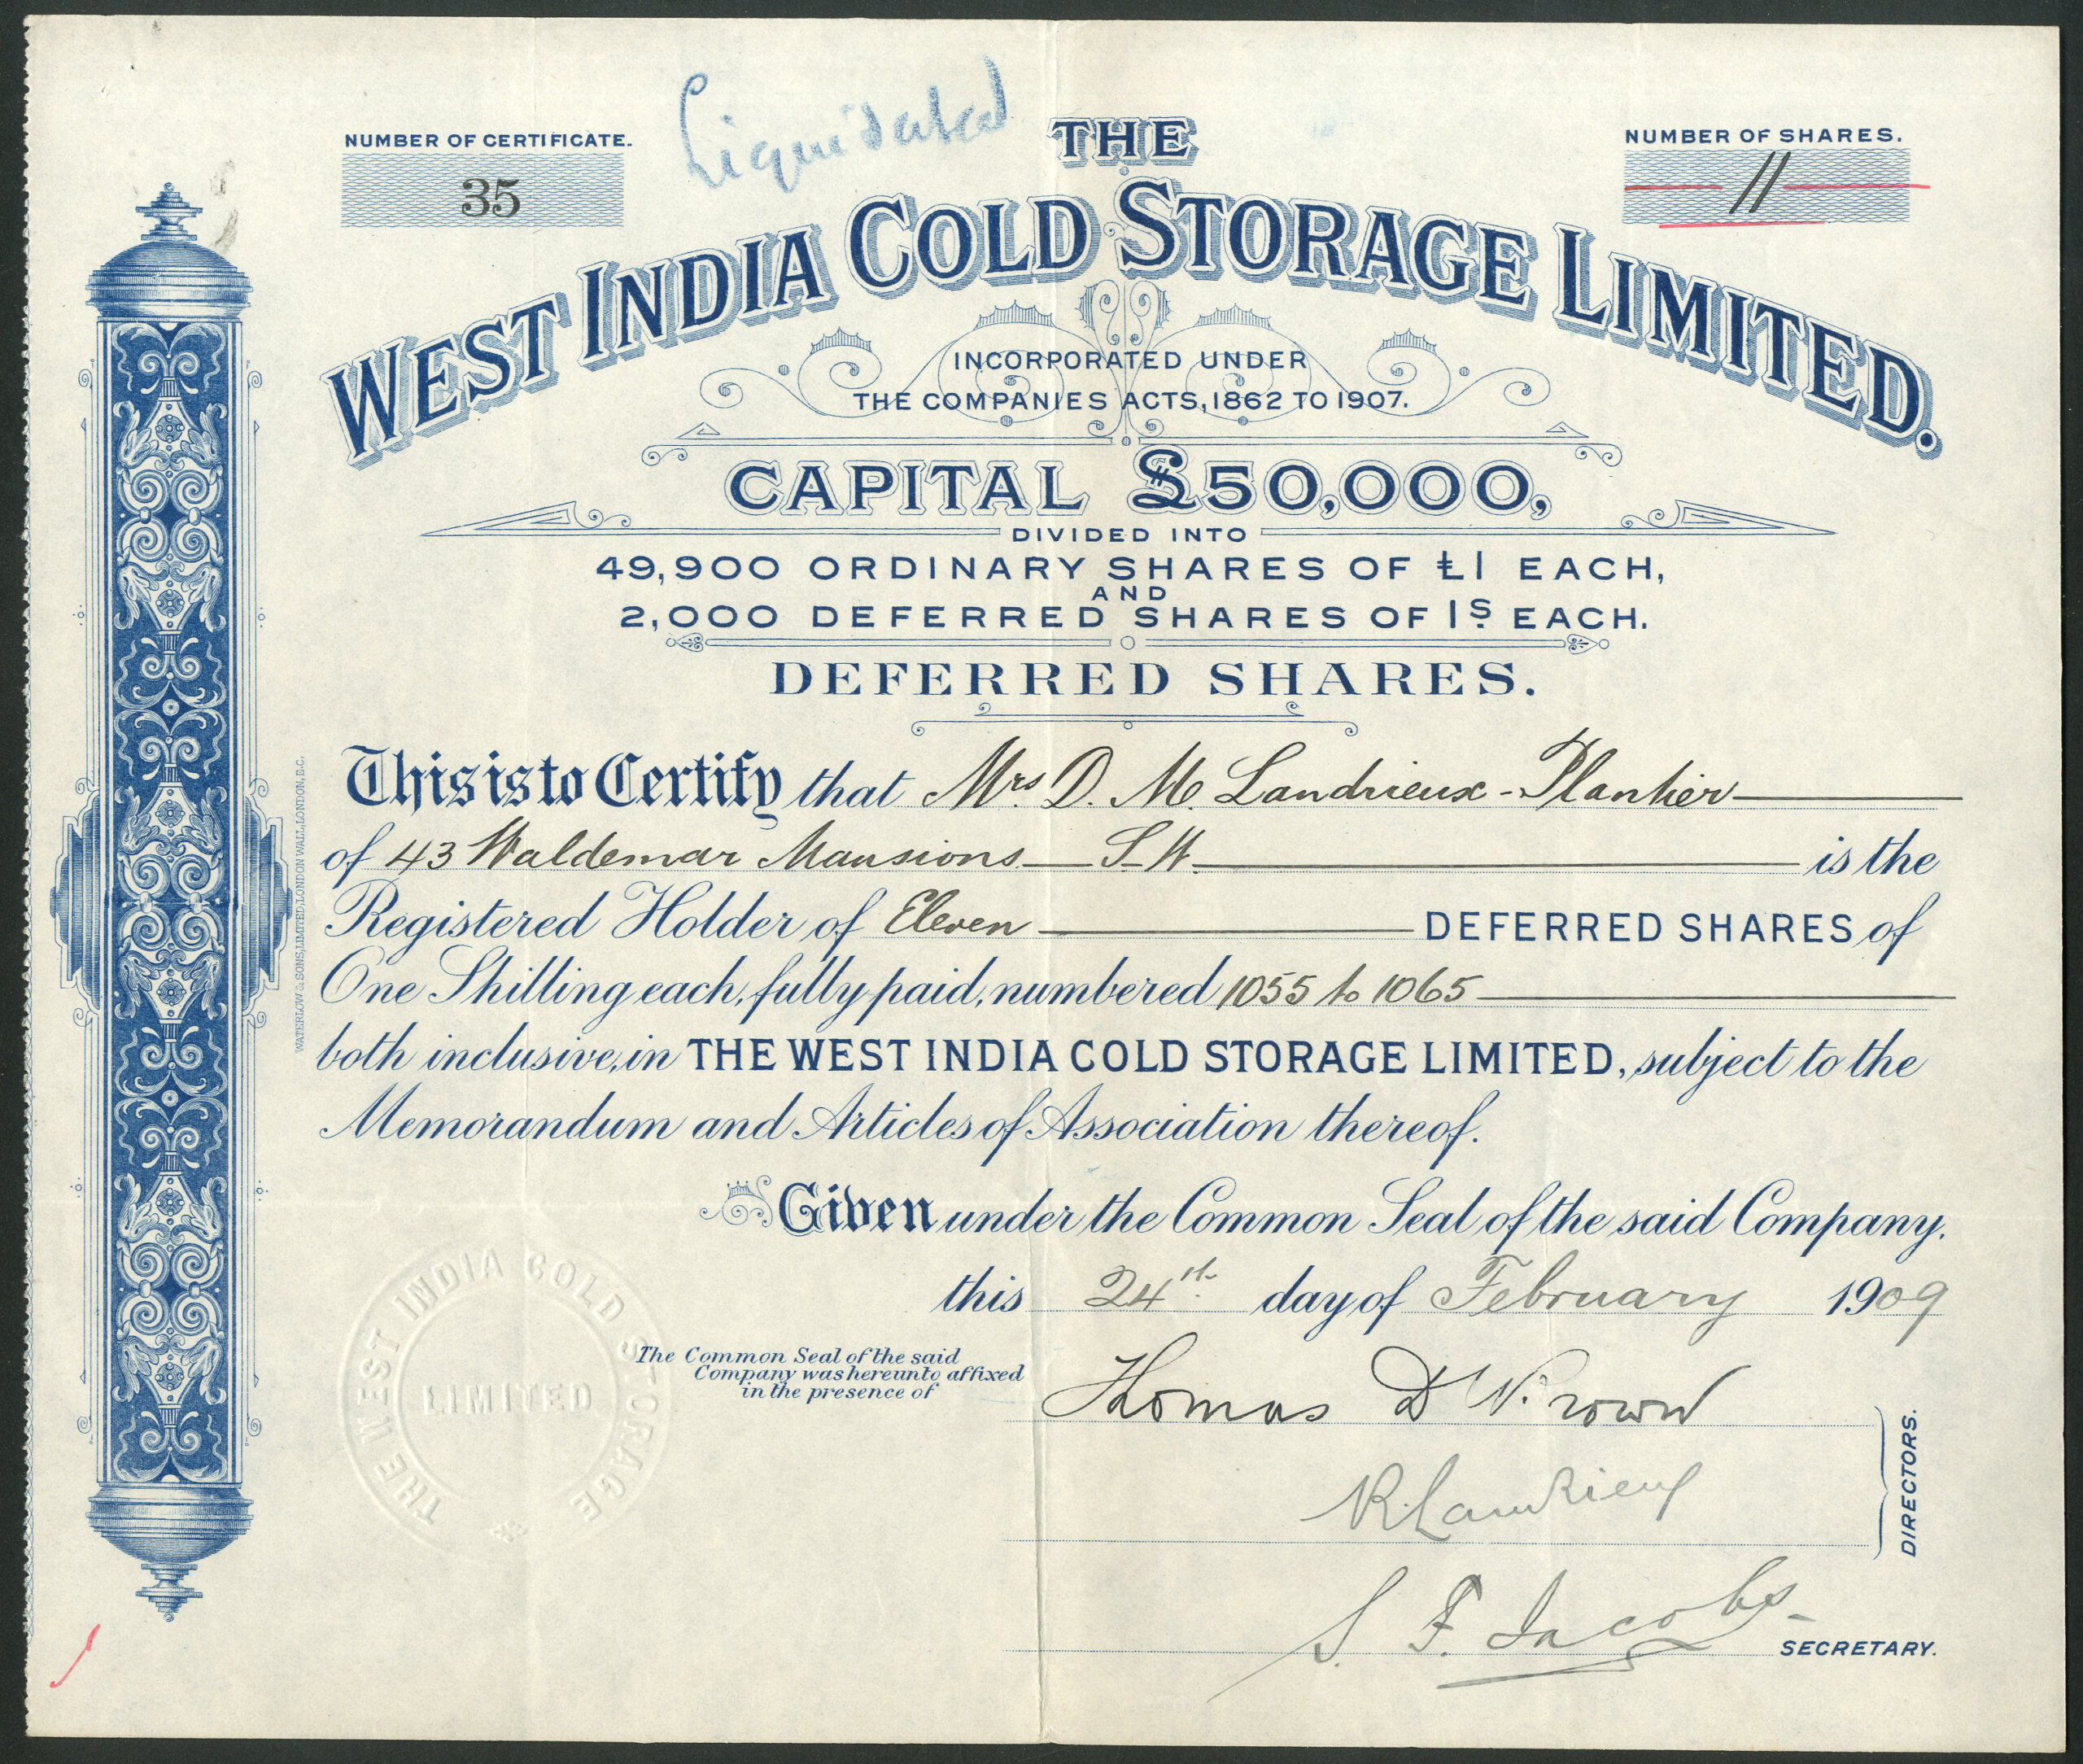 Liquidated
NUMBER OF CERTIFICATE.
35
NUMBER OF SHARES.
11
THE
WEST INDIA COLD STORAGE LIMITED.
INCORPORATED UNDER
THE COMPANIES ACTS, 1862 TO 1907.
CAPITAL £50,000,
DIVIDED INTO
49,900 ORDINARY SHARES OF £1 EACH,
AND
2,000 DEFERRED SHARES OF 1S EACH.
DEFERRED SHARES.
This is to Certify that Mrs. D. M. Landrieux-Plantier
of 43 Waldemar Mansions S.W. is the
Registered Holder of Eleven DEFERRED SHARES of
One Shilling each, fully paid, numbered 1055 to 1065
both inclusive, in THE WEST INDIA COLD STORAGE LIMITED, subject to the
Memorandum and Articles of Association thereof.
Given under the Common Seal of the said Company.
this 24th day of February 1909
The Common Seal of the said
Company was hereunto affixed
in the presence of
Thomas D Brown
R. Landrieux
DIRECTORS.
S. F. Jacobs
SECRETARY.
THE WEST INDIA COLD STORAGE
LIMITED
WATERLOW & SONS, LIMITED, LONDON WALL, LONDON, E.C.